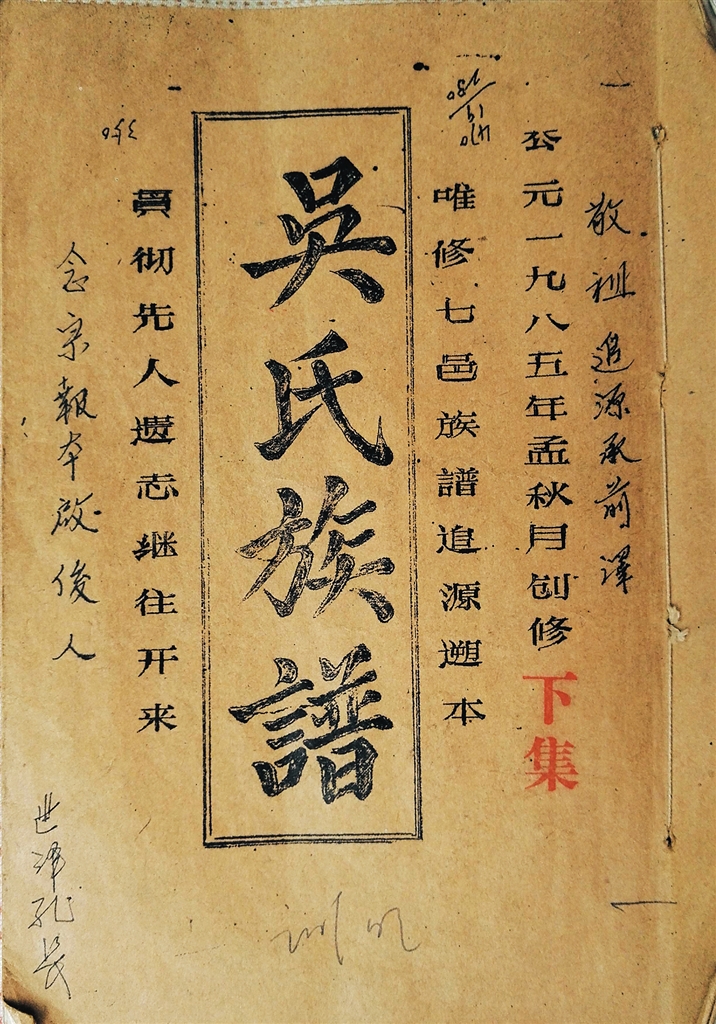 敬祖追源承前澤
公元一九八五年孟秋月创修
下集
唯修七邑族譜追源遡本
吳氏族譜
貫彻先人遗志继往开来
念宗報本啟後人
世泽孔长